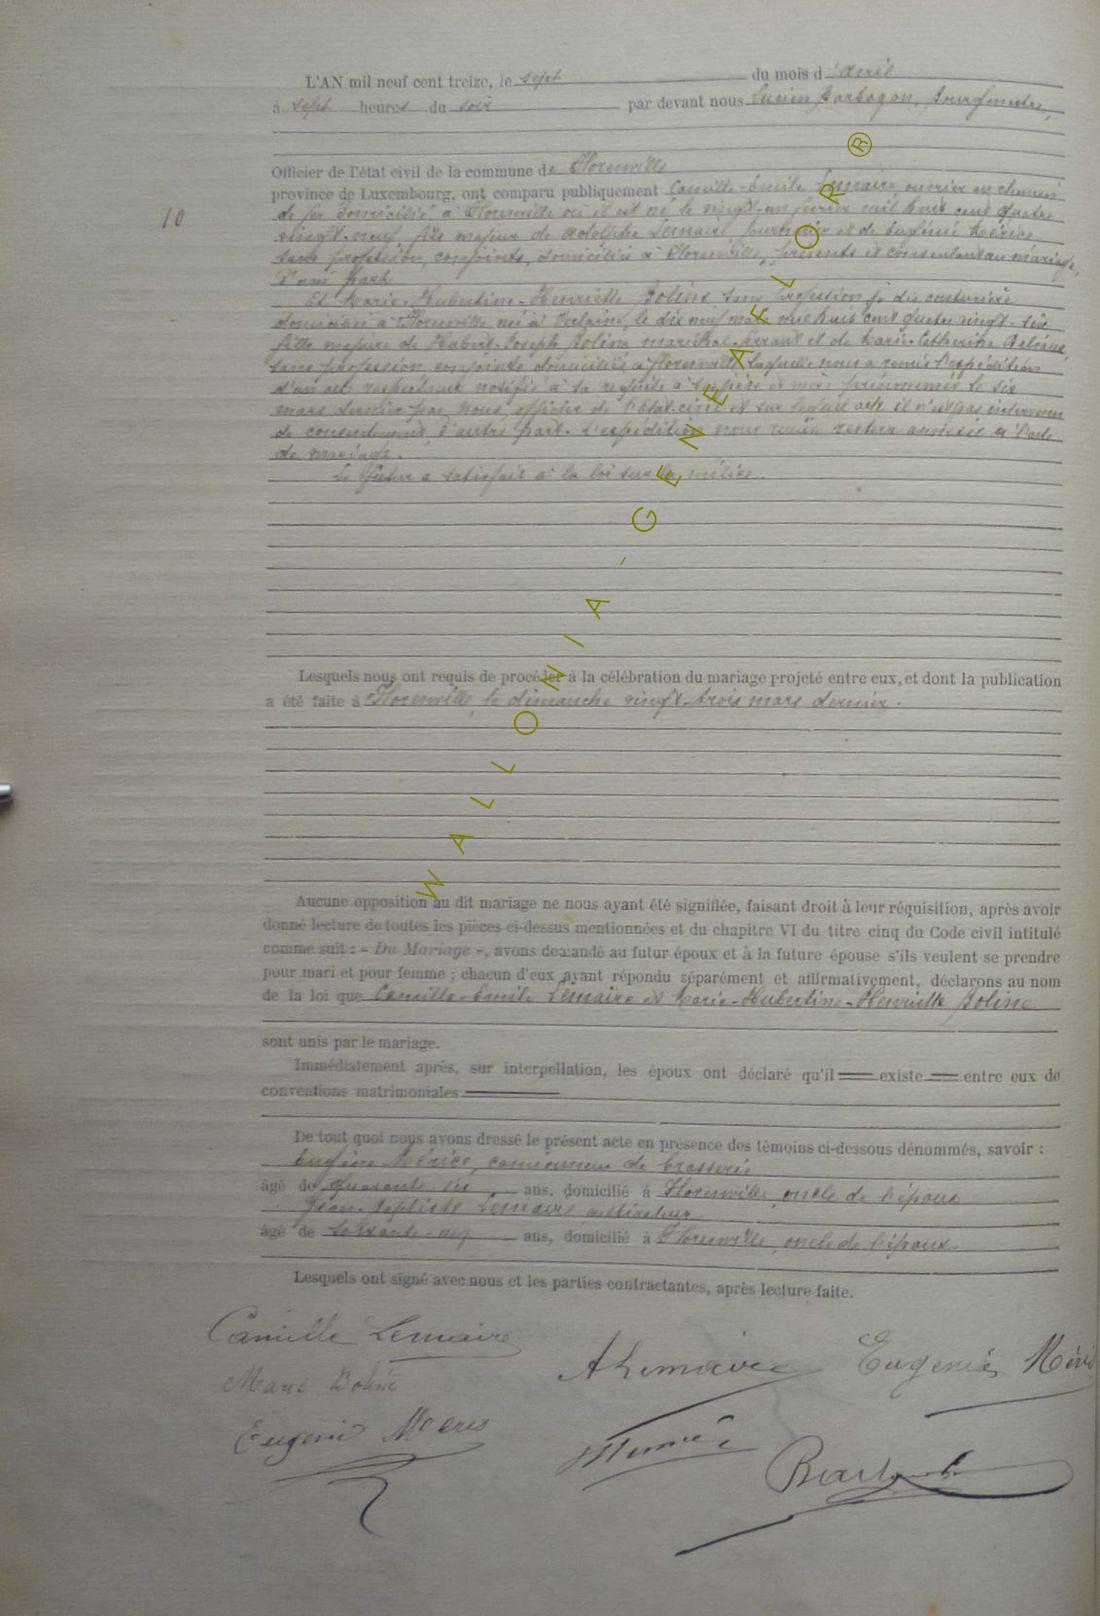 L'AN mil neuf cent treize, le sept du mois d'avril
à sept heures du soir par devant nous Lucien Barbogon, Bourgmestre,
Officier de l'état civil de la commune de Florenville
province de Luxembourg, ont comparu publiquement Camille-Emile Lemaire, ouvrier au chemin
10
de fer domicilié à Florenville où il est né le vingt-un février mil huit cent quatre
vingt-neuf, fils majeur de Adolphe Lemaire, et de Eugénie Mérice
sans profession, conjoints, domiciliés à Florenville, présents et consentant au mariage,
D'une part.
Et Marie-Hubertine-Henriette Boline sans profession, couturière
domiciliée à Florenville née à le dix neuf mil huit cent quatre vingt-six
fille majeure de Hubert-Joseph Boline maréchal-ferrant et de Marie-Catherine
sans profession conjoints domiciliés à Florenville, laquelle nous a remis l'expédition
d'un acte respectueux notifié à sa requête à ses père et mère prénommés le six
mars dernier par nous, officier de l'état-civil et sur lequel acte il n'est pas intervenu
de consentement, d'autre part. L'expédition nous remise restera annexée à l'acte
de mariage.
Le futur a satisfait à la loi sur la milice.
Lesquels nous ont requis de procéder à la célébration du mariage projeté entre eux, et dont la publication
a été faite à Florenville, le dimanche vingt-trois mars dernier.
Aucune opposition au dit mariage ne nous ayant été signifiée, faisant droit à leur réquisition, après avoir
donné lecture de toutes les pièces ci-dessus mentionnées et du chapitre VI du titre cinq du Code civil intitulé
comme suit : « Du Mariage », avons demandé au futur époux et à la future épouse s'ils veulent se prendre
pour mari et pour femme ; chacun d'eux ayant répondu séparément et affirmativement, déclarons au nom
de la loi que Camille-Emile Lemaire et Marie-Hubertine-Henriette Boline
sont unis par le mariage.
Immédiatement après, sur interpellation, les époux ont déclaré qu'il existe entre eux de
conventions matrimoniales
De tout quoi nous avons dressé le présent acte en présence des témoins ci-dessous dénommés, savoir :
Eugène Mérice, camionneur de brasserie
âgé de quarante six ans, domicilié à Florenville, oncle de l'époux
Jean-Baptiste Lemaire, cultivateur
âgé de soixante-un ans, domicilié à Florenville, oncle de l'époux.
Lesquels ont signé avec nous et les parties contractantes, après lecture faite.
Camille Lemaire
ALemaire
Eugénie
Marie Boline
Eugène
WALLONIA-GENEAFLOR®